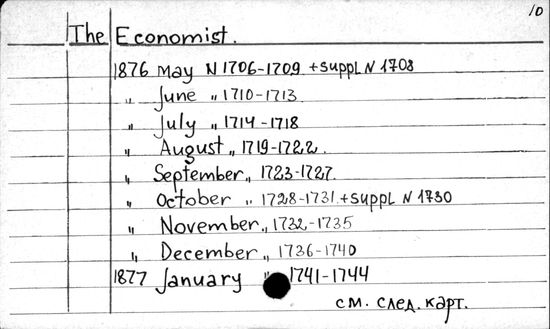 10
The Economist.
1876 May N 1706-1709 +suppl N 1708
" June " 1710-1713
" July " 1714-1718
" August " 1719-1722
" September " 1723-1727
" October " 1728-1731 +suppl N 1730
" November " 1732-1735
" December " 1736-1740
1877 January " 1741-1744
см. след. карт.